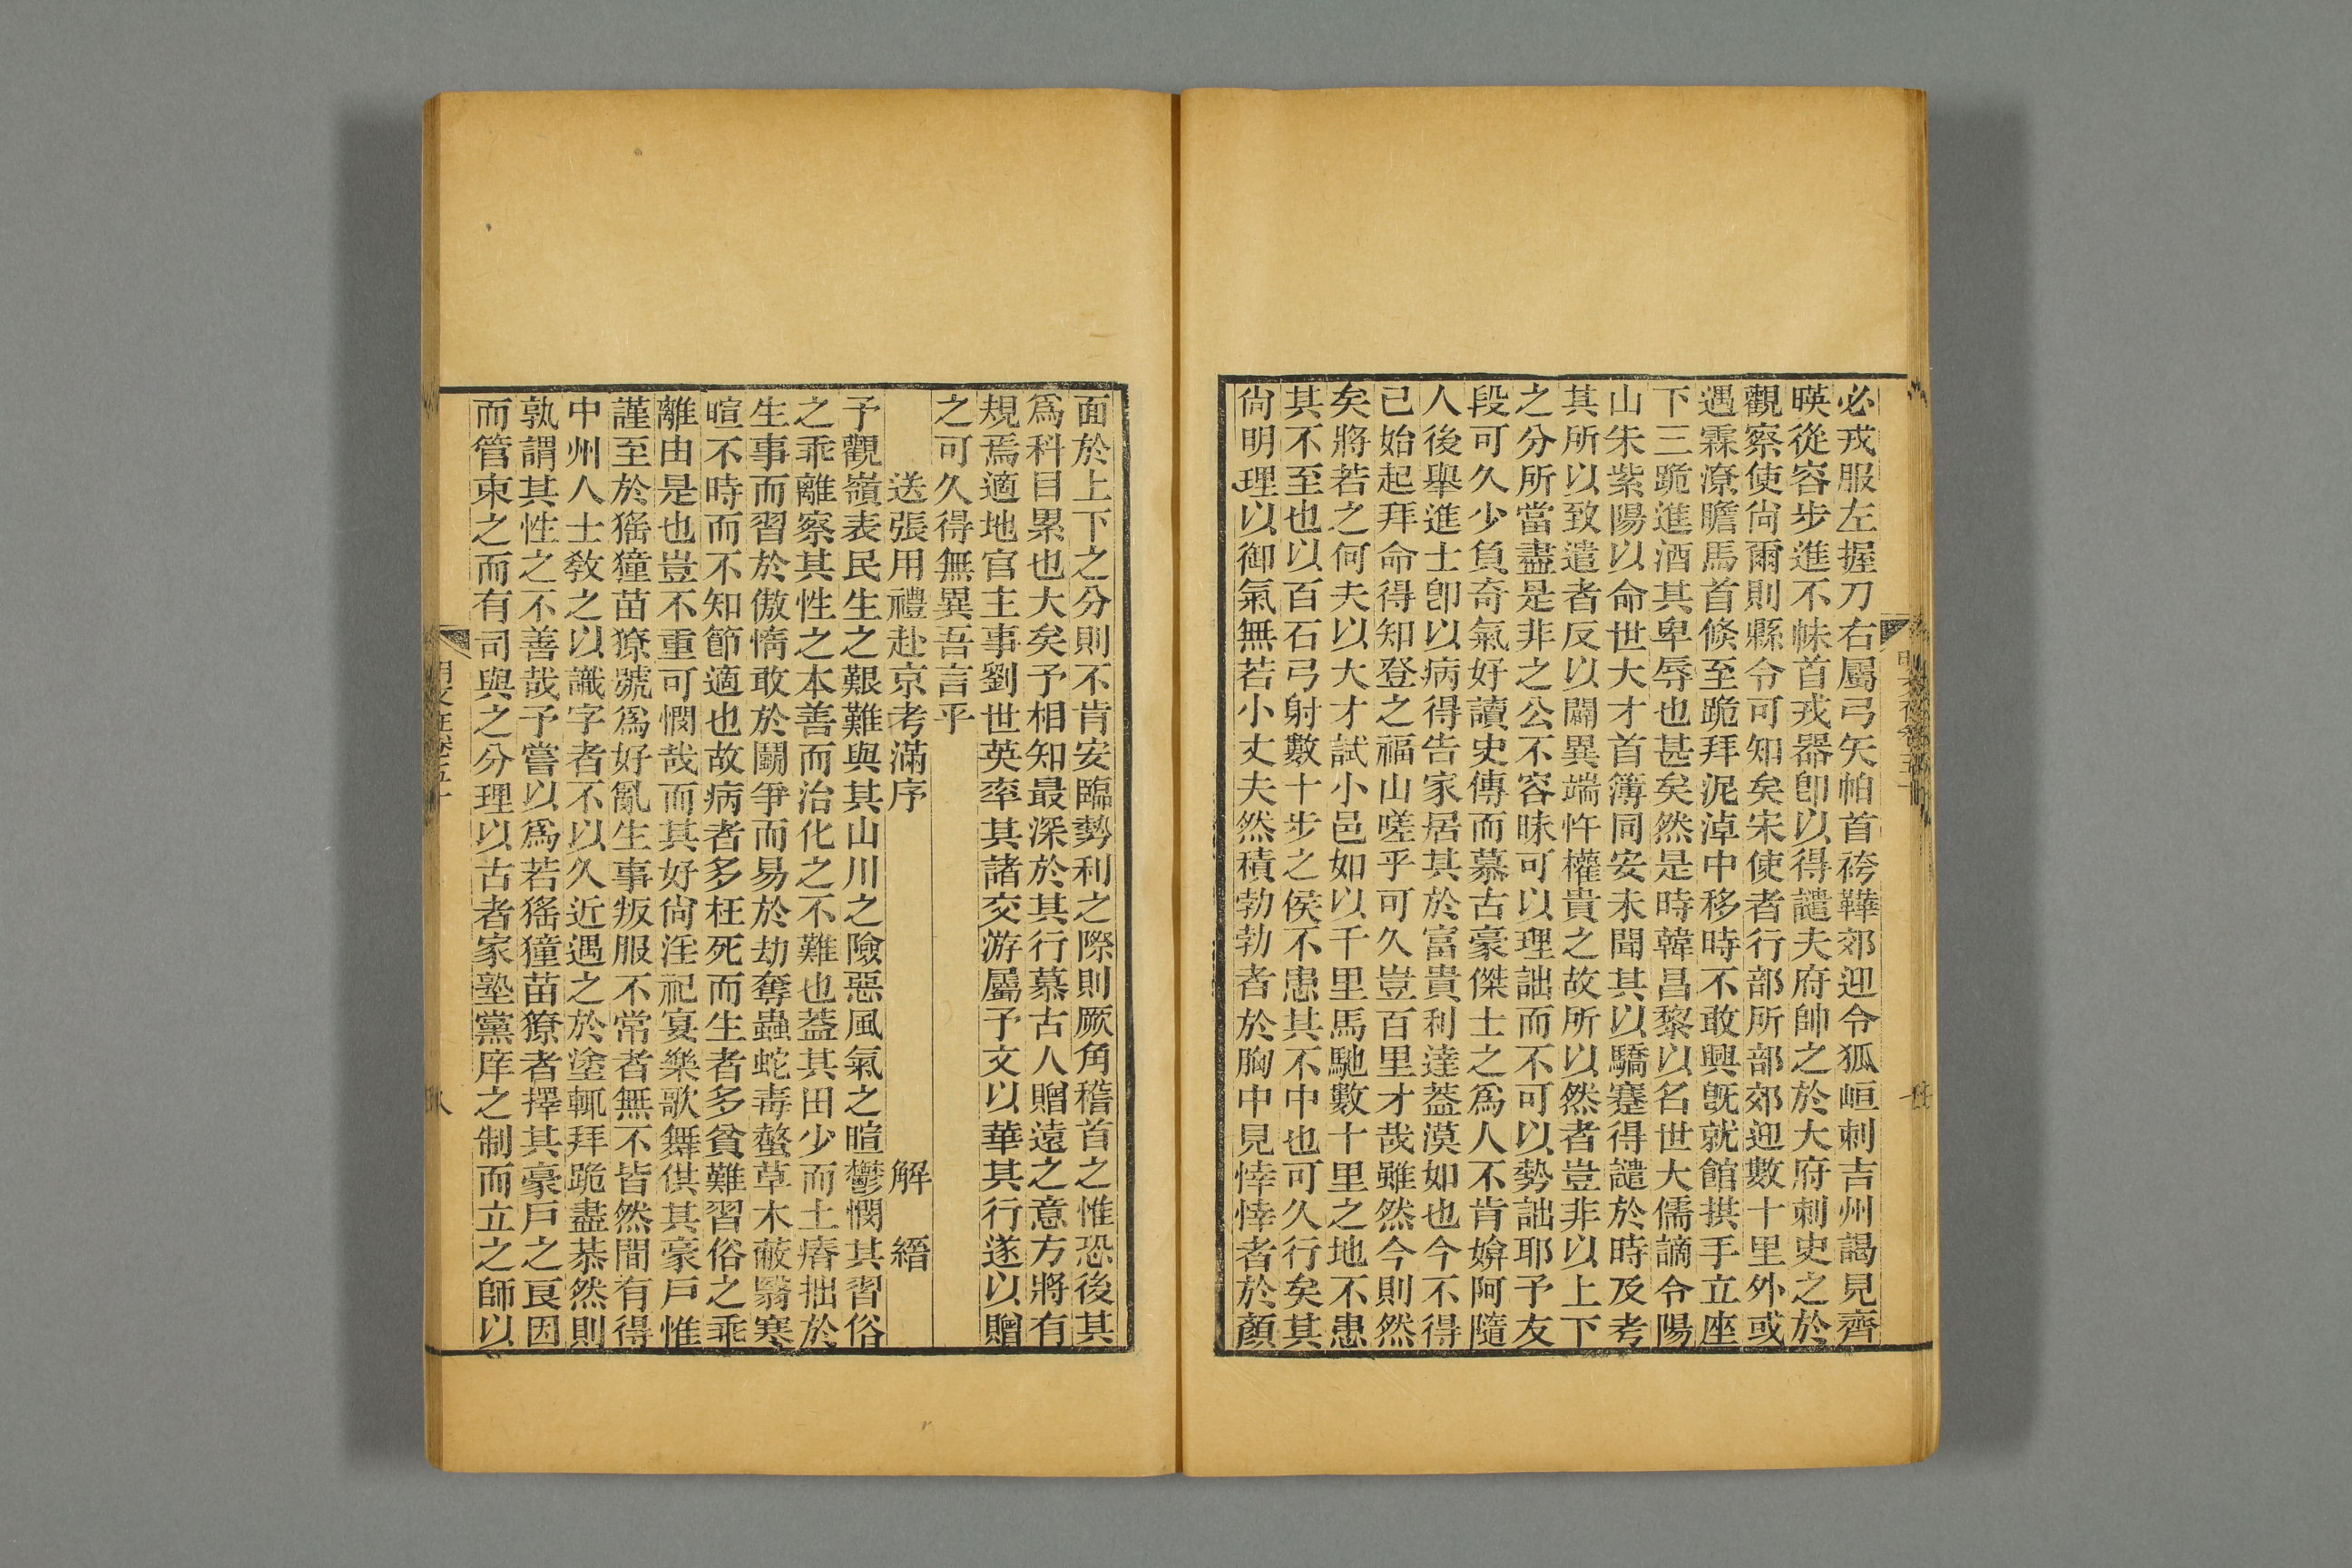 必戎服左握刀右屬弓矢帕首袴鞾郊迎令狐峘刺吉州謁見齊
暎從容步進不㡊首戎器卽以得譴夫府帥之於大府刺史之於
觀察使尙爾則縣令可知矣宋使者行部所部郊迎數十里外或
遇霖潦瞻馬首倐至跪拜泥淖中移時不敢興旣就館拱手立座
下三跪進酒其卑辱也甚矣然是時韓昌黎以名世大儒謫令陽
山朱紫陽以命世大才首簿同安未聞其以驕蹇得譴於時及考
其所以致遣者反以闢異端忤權貴之故所以然者豈非以上下
之分所當盡是非之公不容昧可以理詘而不可以勢詘耶予友
段可久少負奇氣好讀史傳而慕古豪傑士之爲人不肯媕阿隨
人後舉進士卽以病得告家居其於富貴利達蓋漠如也今不得
已始起拜命得知登之福山嗟乎可久豈百里才哉雖然今則然
矣將若之何夫以大才試小邑如以千里馬馳數十里之地不患
其不至也以百石弓射數十步之侯不患其不中也可久行矣其
尙明理以御氣無若小丈夫然積勃勃者於胸中見悻悻者於顏
面於上下之分則不肯安臨勢利之際則厥角稽首之惟恐後其
爲科目累也大矣予相知最深於其行慕古人贈遠之意方將有
規焉適地官主事劉世英率其諸交游屬予文以華其行遂以贈
之可久得無異吾言乎
送張用禮赴京考滿序 解 縉
予觀嶺表民生之艱難與其山川之險惡風氣之暄鬱憫其習俗
之乖離察其性之本善而治化之不難也蓋其田少而土瘠拙於
生事而習於傲惰敢於鬭爭而易於劫奪蟲蛇毒螫草木蔽翳寒
暄不時而不知節適也故病者多枉死而生者多貧難習俗之乖
離由是也豈不重可憫哉而其好尙淫祀宴樂歌舞供其豪戶惟
謹至於猺獞苗獠號爲好亂生事叛服不常者無不皆然間有得
中州人士敎之以識字者不以久近遇之於塗輒拜跪盡恭然則
孰謂其性之不善哉予嘗以爲若猺獞苗獠者擇其豪戶之良因
而管束之而有司與之分理以古者家塾黨庠之制而立之師以
八